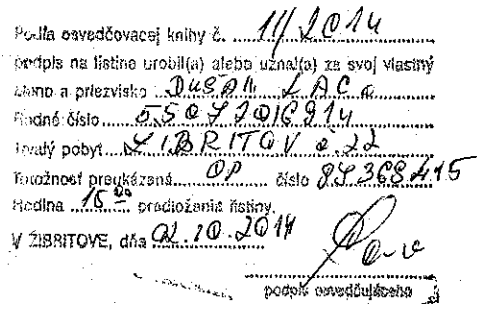 Podľa osvedčovacej knihy č. 11/2014
podpis na listine urobil(a) alebo uznal(a) za svoj vlastný
Meno a priezvisko DUŠAN LACA
Rodné číslo
Trvalý pobyt ŽIBRITOV č. 22
Totožnosť preukázaná OP číslo
Hodina 15 00 predloženia listiny.
V ŽIBRITOVE, dňa 02.10.2014
podpis osvedčujúceho